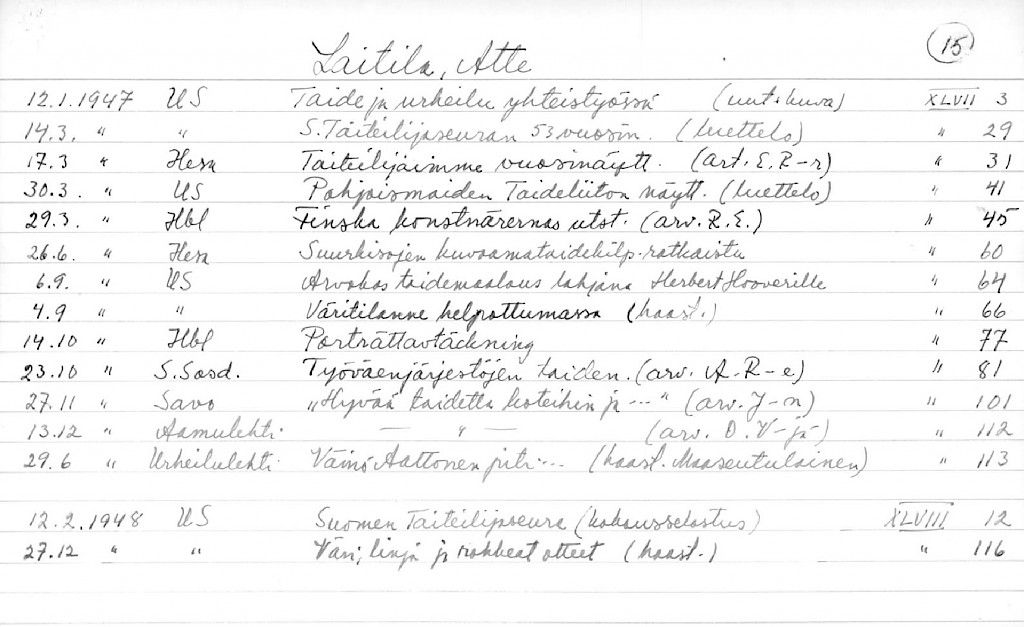 15
Laitila, Atte
12.1.1947 US Taide ja urheilu yhteistyössä (uut. kuva) XLVII 3
14.3. " " S. Taiteilijaseuran 53 vuosin. (luettelo) " 29
17.3 " Hesa Taiteilijaimme vuosinäytt. (art. E. R-r) " 31
30.3. " US Pohjoismaiden Taideliiton näytt. (luettelo) " 41
29.3. " Hbl Finska konstnärernas utst. (arv. R. E.) " 45
26.6. " Hesa Suurkisojen kuvaamataidekilp. ratkaistu " 60
6.9. " US Arvokas taidemaalaus lahjana Herbert Hooverille " 64
4.9 " " Väritilanne helpottumassa (haast.) " 66
14.10 " Hbl Porträttavtäckning " 77
23.10 " S. Sosd. Työväenjärjestöjen taiden. (arv. A. R-e) " 81
27.11 " Savo "Hyvää taidetta koteihin ja --- " (arv. J-n) " 101
13.12 " Aamulehti — " — (arv. O. V-jä) " 112
29.6 " Urheilulehti Väinö Aaltonen piti --- (haast. Maaseutulainen) " 113
12.2.1948 US Suomen Taiteilijaseura (kokousselostus) XLVIII 12
27.12 " " Väri, linja ja rohkeat otteet (haast.) " 116